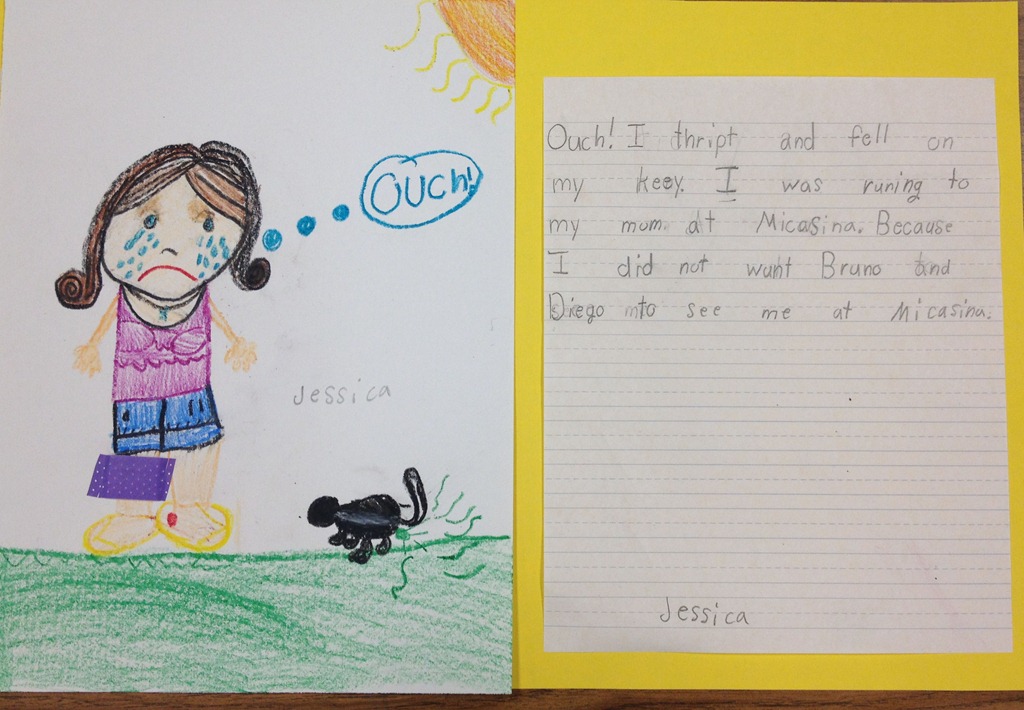 Ouch!
Jessica
Ouch! I thript and fell on
my keey. I was runing to
my mom at Micasina. Because
I did not want Bruno and
Diego to see me at Micasina.
Jessica